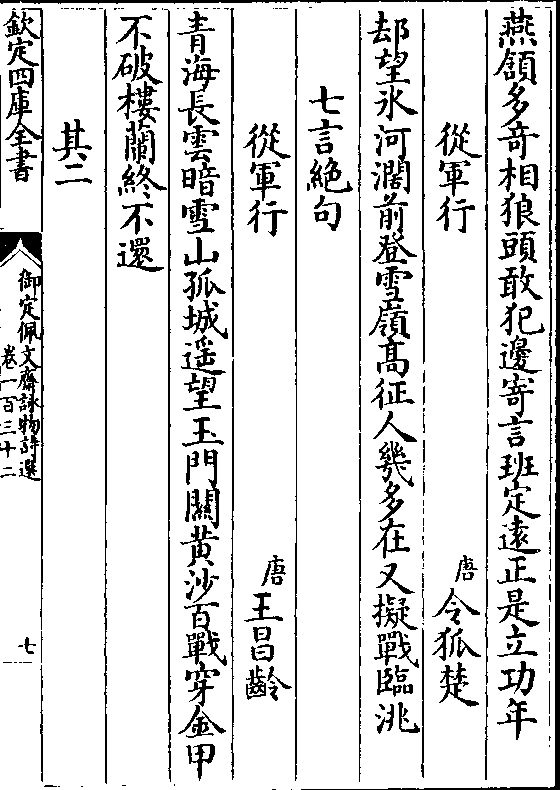 燕頷多奇相狼頭敢犯邊寄言班定遠正是立功年
從軍行 唐 令狐楚
却望氷河濶前登雪嶺髙征人幾多在又擬戰臨洮
七言絶句
從軍行 唐 王昌齡
青海長雲暗雪山孤城遥望玉門關黄沙百戰穿金甲
不破樓蘭終不還
其二
欽定四庫全書
御定佩文齋詠物詩選
卷一百三十二
七